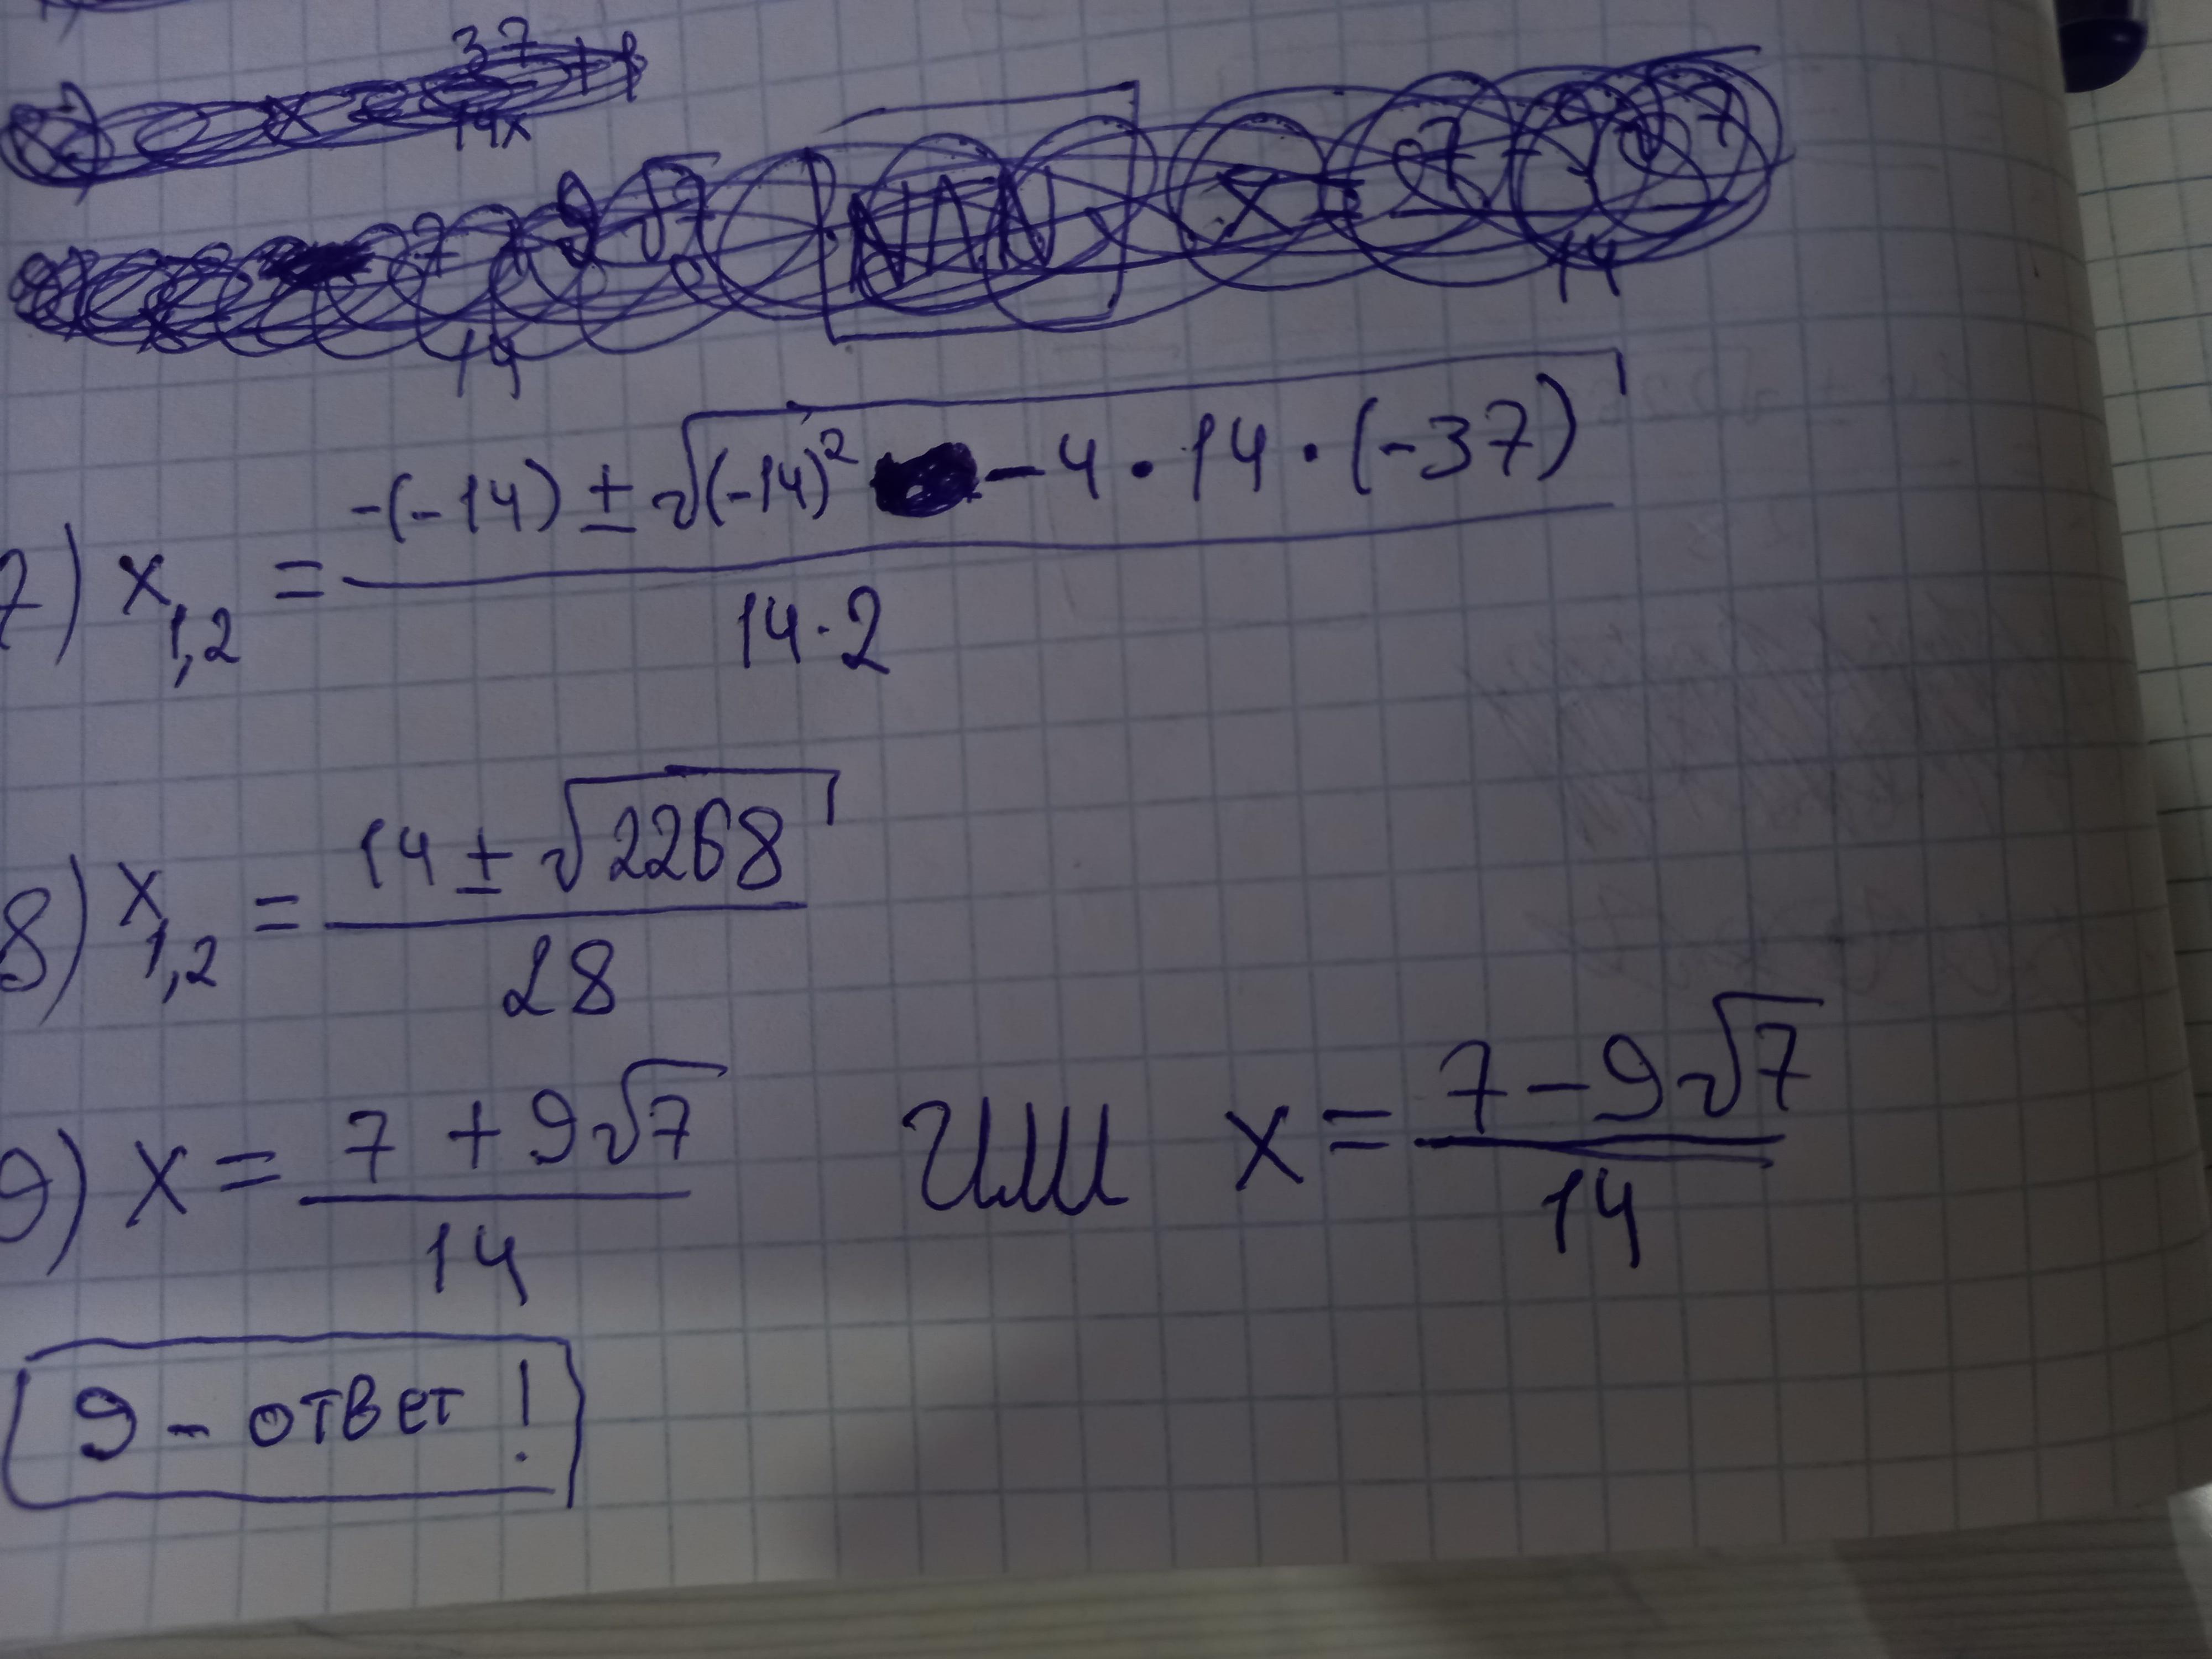 7) x₁,₂ = (-(-14) ± √((-14)² - 4 · 14 · (-37))) / (14 · 2)
8) x₁,₂ = (14 ± √2268) / 28
9) x = (7 + 9√7) / 14 или x = (7 - 9√7) / 14
9 - ответ!